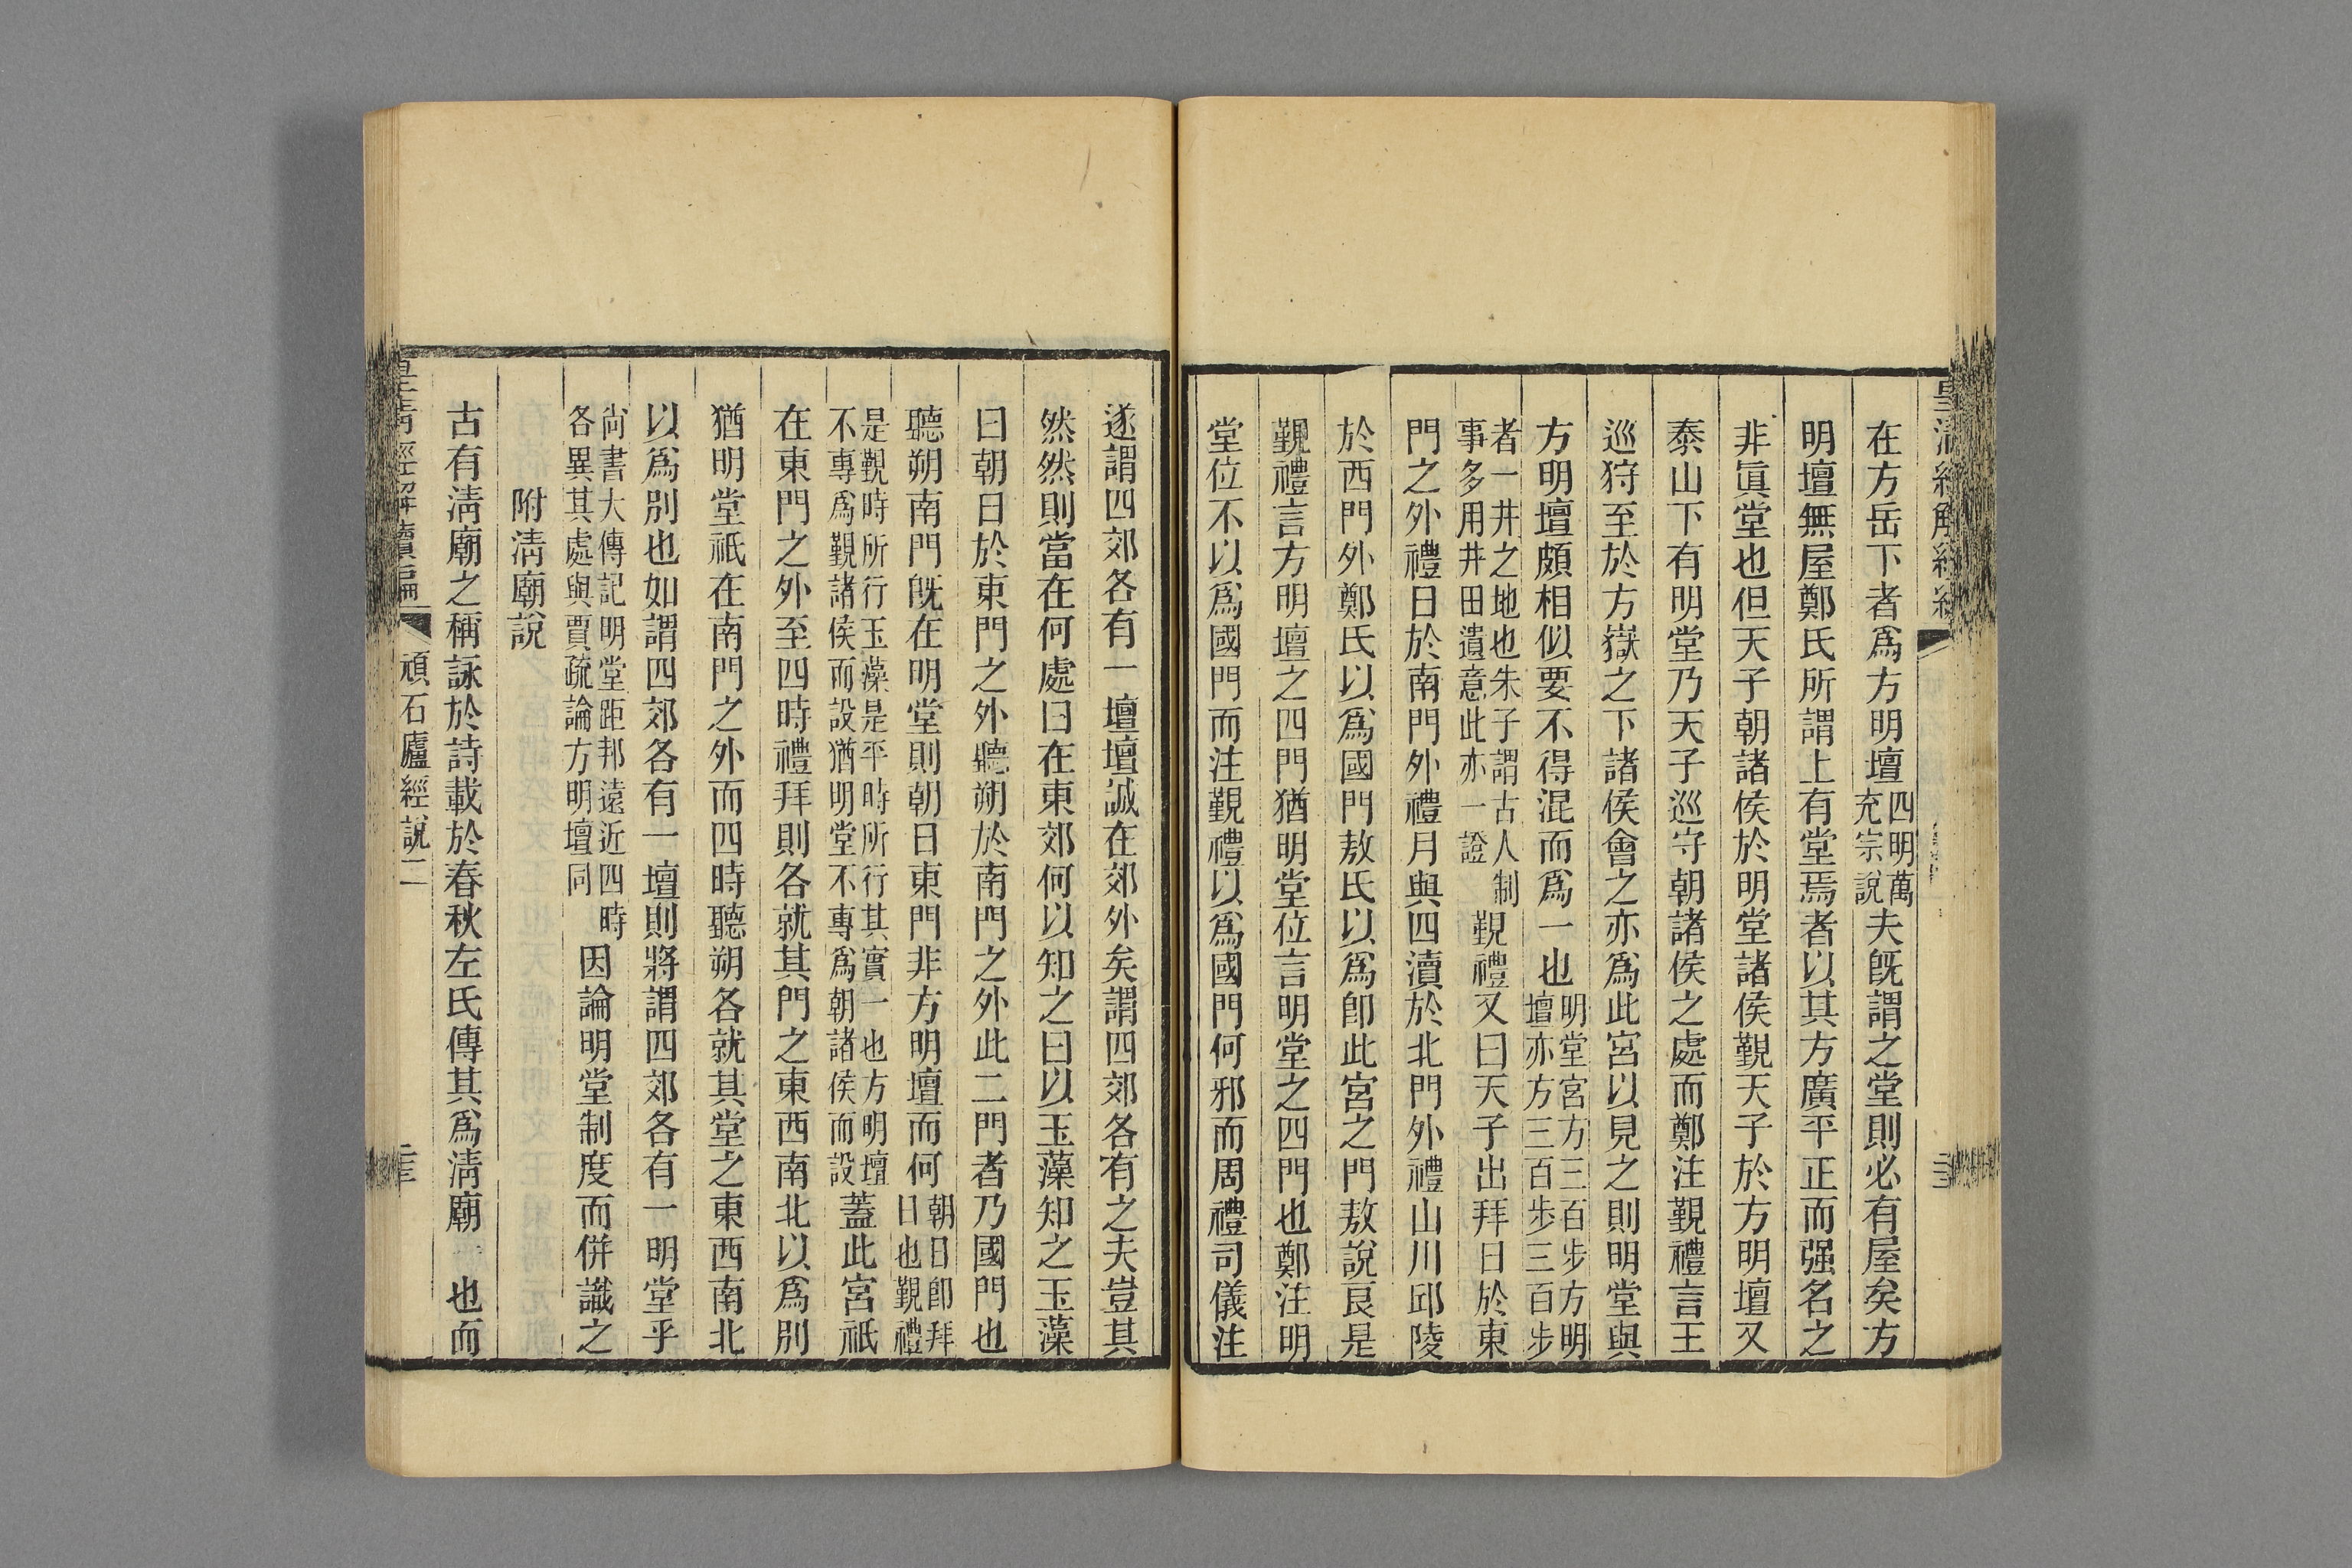 在方岳下者爲方明壇四明萬充宗說夫旣謂之堂則必有屋矣方
明壇無屋鄭氏所謂上有堂焉者以其方廣平正而强名之
非眞堂也但天子朝諸侯於明堂諸侯覲天子於方明壇又
泰山下有明堂乃天子巡守朝諸侯之處而鄭注覲禮言王
巡狩至於方嶽之下諸侯會之亦爲此宮以見之則明堂與
方明壇頗相似要不得混而爲一也明堂宮方三百步方明壇亦方三百步三百步
者一井之地也朱子謂古人制事多用井田遺意此亦一證覲禮又曰天子出拜日於東
門之外禮日於南門外禮月與四瀆於北門外禮山川邱陵
於西門外鄭氏以爲國門敖氏以爲卽此宮之門敖說良是
覲禮言方明壇之四門猶明堂位言明堂之四門也鄭注明
堂位不以爲國門而注覲禮以爲國門何邪而周禮司儀注
遂謂四郊各有一壇壇誠在郊外矣謂四郊各有之夫豈其
然然則當在何處曰在東郊何以知之曰以玉藻知之玉藻
曰朝日於東門之外聽朔於南門之外此二門者乃國門也
聽朔南門旣在明堂則朝日東門非方明壇而何朝日卽拜日也覲禮
是覲時所行玉藻是平時所行其實一也方明壇不專爲覲諸侯而設猶明堂不專爲朝諸侯而設蓋此宮祇
在東門之外至四時禮拜則各就其門之東西南北以爲別
猶明堂祇在南門之外而四時聽朔各就其堂之東西南北
以爲別也如謂四郊各有一壇則將謂四郊各有一明堂乎
尙書大傳記明堂距邦遠近四時各異其處與賈疏論方明壇同因論明堂制度而併識之
附淸廟說
古有淸廟之稱詠於詩載於春秋左氏傳其爲淸廟也而
皇淸經解續編
頑石廬經說二